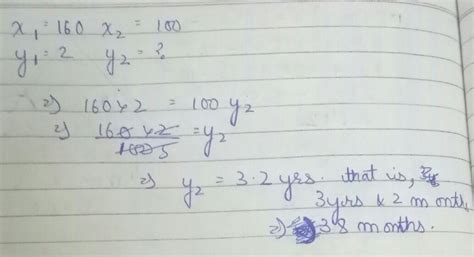 x₁ = 160 x₂ = 100
y₁ = 2 y₂ = ?
⇒ 160 × 2 = 100 y₂
⇒ 160 × 2 / 100 5 = y₂
⇒ y₂ = 3.2 yrs. that is,
3 yrs & 2 months,
⇒ 38 months.